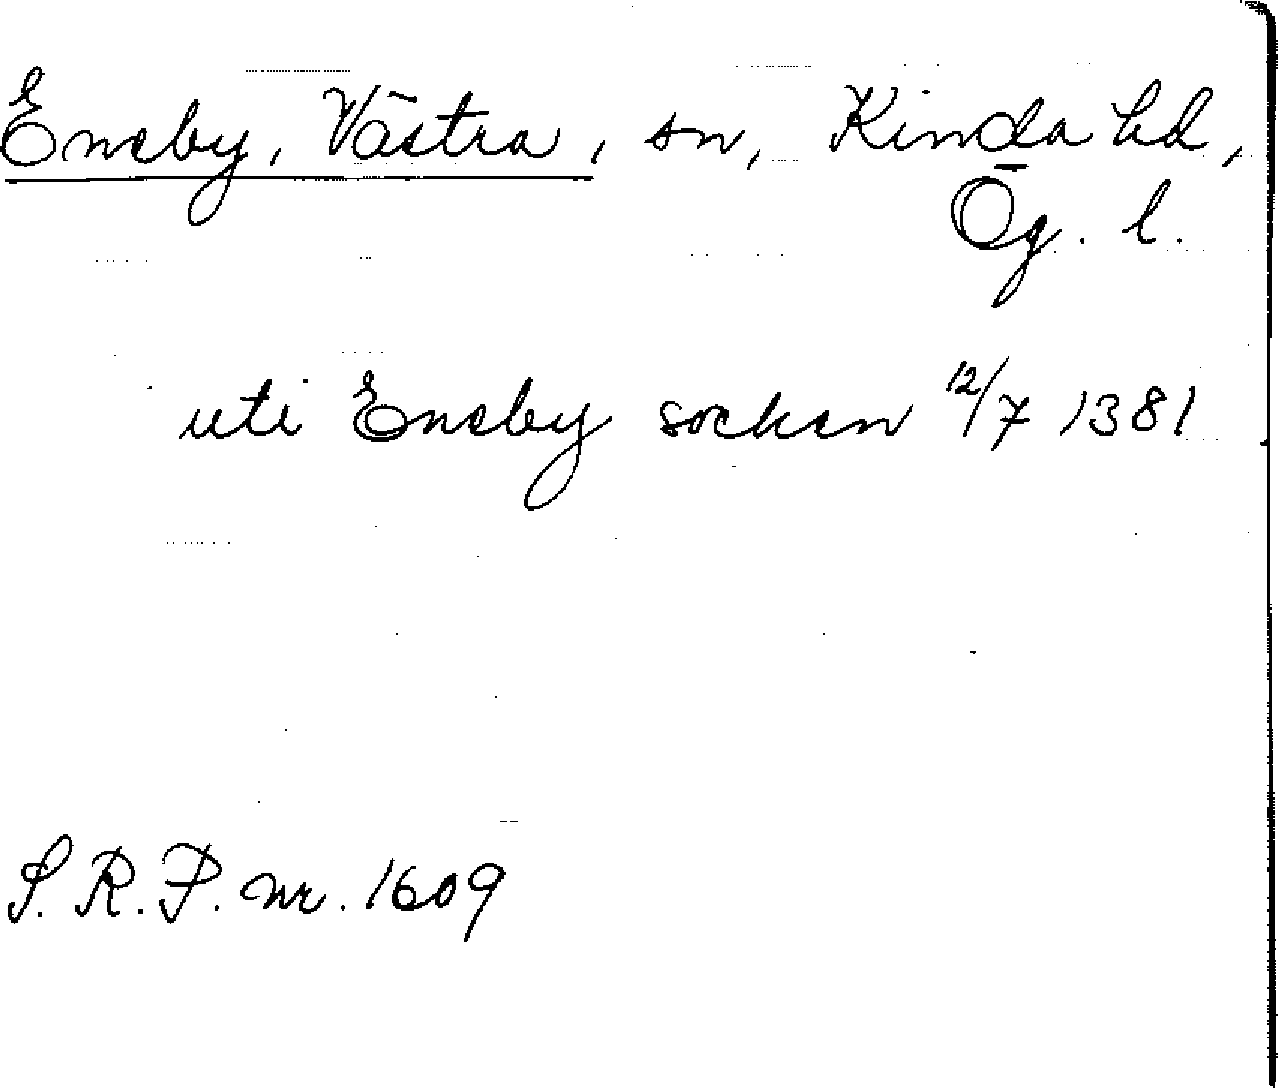 Eneby, Västra, sn, Kinda hd,
Ög. l.
uti Eneby socken 12/7 1381
S.R.P. nr. 1609